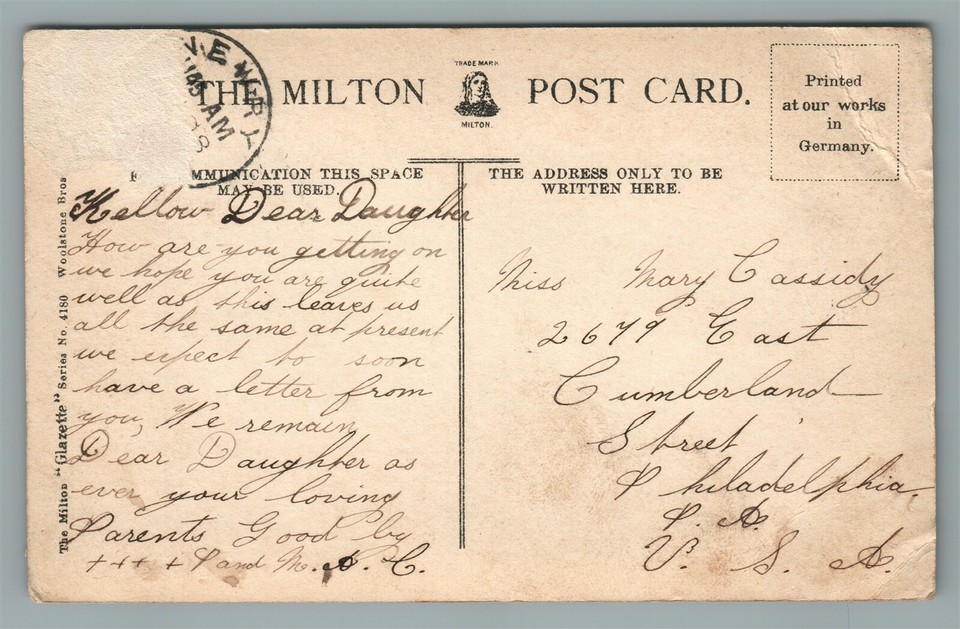 NEWRY
AM
THE MILTON POST CARD.
TRADE MARK
MILTON.
Printed
at our works
in
Germany.
MMUNICATION THIS SPACE
MAY BE USED.
THE ADDRESS ONLY TO BE
WRITTEN HERE.
Kellow Dear Daughter
How are you getting on
we hope you are quite
well as this leaves us
all the same at present
we expect to soon
have a letter from
you, We remain
Dear Daughter as
ever your loving
Parents Good by
++++ P and M. A. C.
Miss Mary Cassidy
2679 East
Cumberland
Street
Philadelphia,
P. A.
U. S. A.
The Milton "Glazette" Series No. 4180 Woolstone Bros